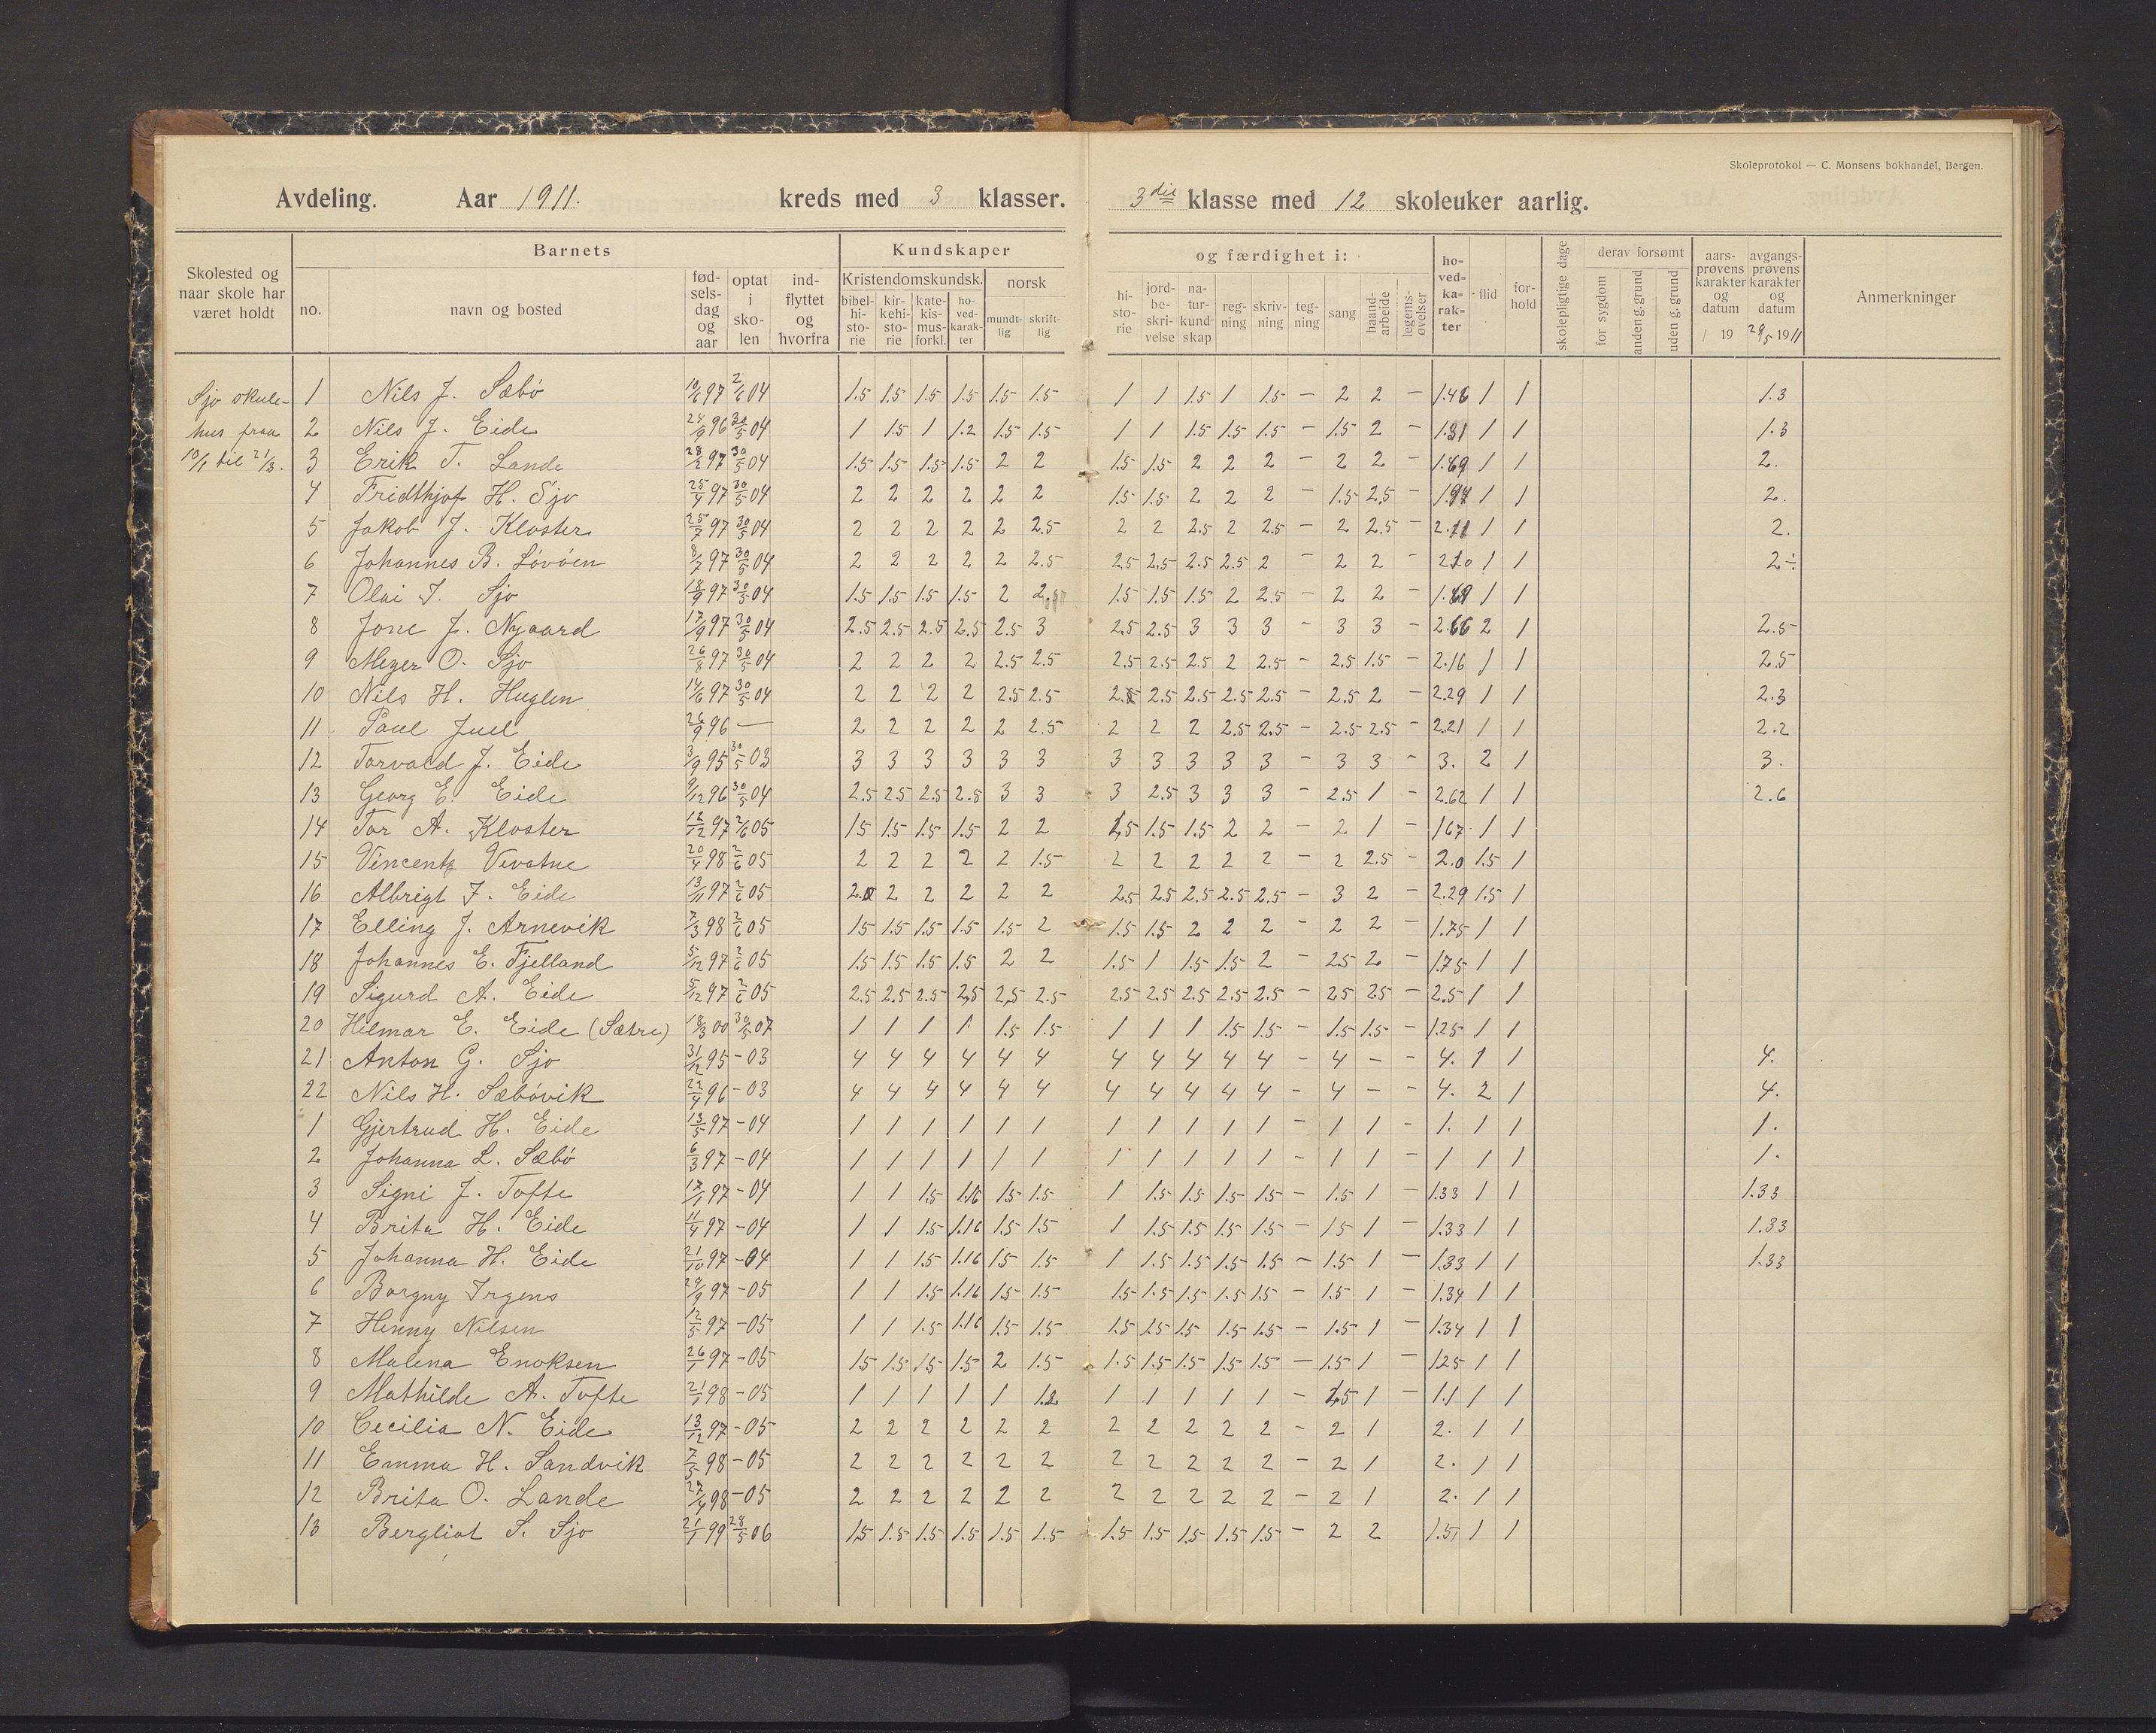 Skoleprotokol — C. Monsens bokhandel, Bergen.
Avdeling. Aar 1911. kreds med 3 klasser. 3die klasse med 12 skoleuker aarlig.
Skolested og naar skole har været holdt
Barnets
no. navn og bosted fødselsdag og aar optat i skolen indflyttet og hvorfra
Kundskaper og færdighet i:
Kristendomskundsk. norsk
bibelhistorie kirkehistorie katekismusforkl. hovedkarakter mundtlig skriftlig
historie jordbeskrivelse naturkundskap regning skrivning tegning sang haandarbeide legemsøvelser
hovedkarakter flid forhold
skolepligtige dage
derav forsømt
for sygdom anden g. grund uden g. grund
aarsprøvens karakter og datum / 19
avgangsprøvens karakter og datum 29/5 1911
Anmerkninger
Sjo skule-
hus fraa
10/1 til 21/3.
1 Nils J. Sæbö 10/6 97 2/6 04 1.5 1.5 1.5 1.5 1.5 1.5 1 1 1.5 1 1.5 – 2 2 – 1.46 1 1 1.3
2 Nils J. Eide 24/9 96 30/5 04 1 1.5 1 1.2 1.5 1.5 1 1 1.5 1.5 1.5 – 1.5 2 – 1.31 1 1 1.3
3 Erik T. Lande 28/2 97 30/5 04 1.5 1.5 1.5 1.5 2 2 1.5 1.5 2 2 2 – 2 2 – 1.69 1 1 2.
4 Fridthjof H. Sjo 25/4 97 30/5 04 2 2 2 2 2 2 1.5 1.5 2 2 2 – 1.5 2.5 – 1 1 2.
5 Jakob J. Kloster 25/7 97 30/5 04 2 2 2 2 2 2.5 2 2 2.5 2 2.5 – 2 2.5 – 2.11 1 1 2.
6 Johannes B. Lövöen 8/7 97 30/5 04 2 2 2 2 2 2.5 2.5 2.5 2.5 2.5 2 – 2 2 – 2.10 1 1 2÷
7 Olai I. Sjo 18/9 97 30/5 04 1.5 1.5 1.5 1.5 2 1.5 1.5 1.5 2 2.5 – 2 2 – 1 1
8 Jone J. Nygaard 17/9 97 30/5 04 2.5 2.5 2.5 2.5 2.5 3 2.5 2.5 3 3 3 – 3 3 – 2.66 2 1 2.5
9 Meyer O. Sjo 26/8 97 30/5 04 2 2 2 2 2.5 2.5 2.5 2.5 2.5 2 2.5 – 2.5 1.5 – 2.16 1 1 2.5
10 Nils H. Huglen 14/6 97 30/5 04 2 2 2 2 2.5 2.5 2.5 2.5 2.5 2.5 2.5 – 2.5 2 – 2.29 1 1 2.3
11 Paul Juel 26/9 96 — 2 2 2 2 2 2.5 2 2 2 2.5 2.5 – 2.5 2.5 – 2.21 1 1 2.2
12 Torvald J. Eide 3/9 95 30/5 03 3 3 3 3 3 3 3 3 3 3 3 – 3 3 – 3. 2 1 3.
13 Georg E. Eide 9/12 96 30/5 04 2.5 2.5 2.5 2.5 3 3 3 2.5 3 3 3 – 2.5 1 – 2.62 1 1 2.6
14 Tor A. Kloster 16/12 97 2/6 05 1.5 1.5 1.5 1.5 2 2 1.5 1.5 1.5 2 2 – 2 1 – 1.67 1 1
15 Vincentz Vevatne 20/4 98 2/6 05 2 2 2 2 2 1.5 2 2 2 2 2 – 2 2.5 – 2.0 1.5 1
16 Albrigt J. Eide 13/11 97 2/6 05 2 2 2 2 2 2 2.5 2.5 2.5 2.5 2.5 – 3 2 – 2.29 1.5 1
17 Elling J. Arnevik 7/3 98 2/6 05 1.5 1.5 1.5 1.5 1.5 2 1.5 1.5 2 2 2 – 2 2 – 1.75 1 1
18 Johannes E. Fjelland 5/12 97 2/6 05 1.5 1.5 1.5 1.5 2 2 1.5 1 1.5 1.5 2 – 2.5 2 – 1.75 1 1
19 Sigurd A. Eide 5/12 97 2/6 05 2.5 2.5 2.5 2.5 2.5 2.5 2.5 2.5 2.5 2.5 2.5 – 2.5 2.5 – 2.5 1 1
20 Hilmar E. Eide (Sætre) 18/3 00 30/5 07 1 1 1 1 1.5 1.5 1 1 1 1.5 1.5 – 1.5 1.5 – 1.25 1 1
21 Anton G. Sjo 31/12 95 – 03 4 4 4 4 4 4 4 4 4 4 4 – 4 – – 4. 1 1 4.
22 Nils H. Sæbövik 22/4 96 – 03 4 4 4 4 4 4 4 4 4 4 4 – 4 – – 4. 2 1 4.
1 Gjertrud H. Eide 13/5 97 – 04 1 1 1 1 1 1 1 1 1 1 1 – 1 1 – 1. 1 1 1.
2 Johanna L. Sæbö 6/3 97 – 04 1 1 1 1 1 1 1 1 1 1 1 – 1 1 – 1 1 1 1.
3 Signi J. Tofte 17/1 97 – 04 1 1 1.5 1.16 1.5 1.5 1 1.5 1.5 1.5 1.5 – 1.5 1 – 1.33 1 1 1.33
4 Brita H. Eide 11/4 97 – 04 1 1 1.5 1.16 1.5 1.5 1 1.5 1.5 1.5 1.5 – 1.5 1 – 1.33 1 1 1.33
5 Johanna H. Eide 21/10 97 – 04 1 1 1.5 1.16 1.5 1.5 1 1.5 1.5 1.5 1.5 – 1.5 1 – 1.33 1 1 1.33
6 Borgny Irgens 29/9 97 – 05 1 1 1.5 1.16 1.5 1.5 1.5 1.5 1.5 1.5 1.5 – 1.5 1 – 1.34 1 1
7 Henny Nilsen 12/5 97 – 05 1 1 1.5 1.16 1.5 1.5 1.5 1.5 1.5 1.5 1.5 – 1.5 1 – 1.34 1 1
8 Malena Enoksen 26/1 97 – 05 1.5 1.5 1.5 1.5 2 1.5 1.5 1.5 1.5 1.5 1.5 – 1.5 1 – 1.25 1 1
9 Mathilde A. Tofte 21/1 98 – 05 1 1 1 1 1 1.2 1 1 1 1 1 – 1.5 1 – 1.1 1 1
10 Cecilia N. Eide 13/12 97 – 05 2 2 2 2 2 2 2 2 2 2 2 – 2 1 2. 1 1
11 Emma H. Sandvik 7/5 98 – 05 2 2 2 2 2 2 2 2 2 2 2 – 2 1 2. 1 1
12 Brita O. Lande 27/4 98 – 05 2 2 2 2 2 2 2 2 2 2 2 – 2 1 2. 1 1
13 Bergliot S. Sjo 21/1 99 28/5 06 1.5 1.5 1.5 1.5 1.5 1.5 1.5 1.5 1.5 1.5 1.5 – 2 2 1.5 1 1